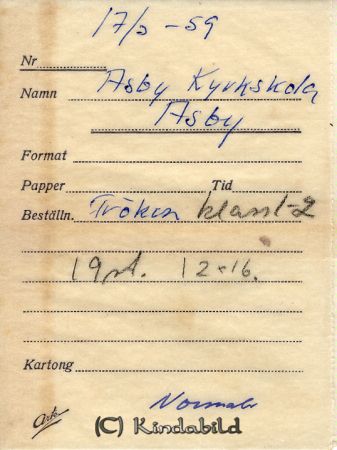 17/3 - 59
Nr
Namn Asby Kyrkskola
Asby
Format
Papper Tid
Beställn. Fröken klass 1-2
19 st. 12×16.
Kartong
Ark Normalv
(C) Kindabild